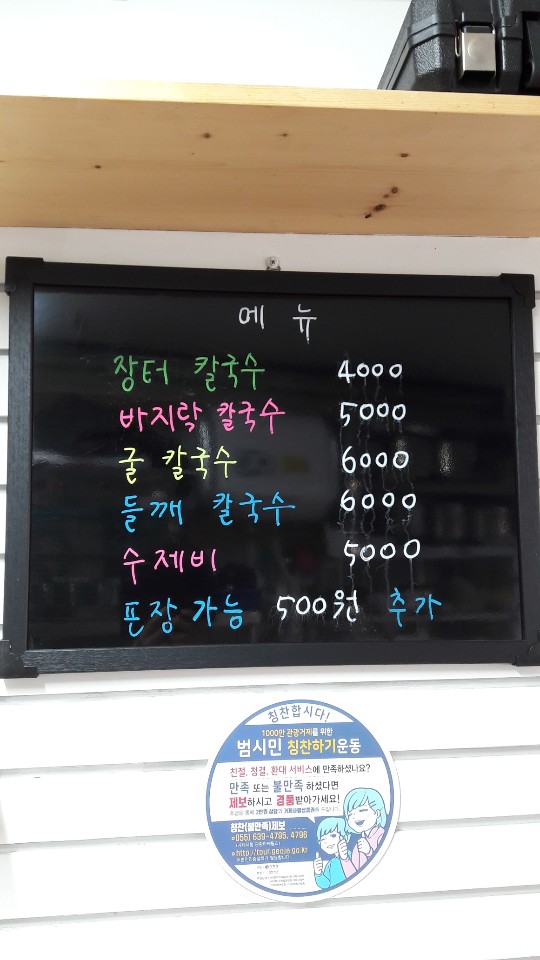 메뉴
장터 칼국수 4000
바지락 칼국수 5000
굴 칼국수 6000
들깨 칼국수 6000
수제비 5000
포장가능 500원 추가
칭찬합시다!
1000만 관광거제를 위한
범시민 칭찬하기운동
친절, 청결, 환대 서비스에 만족하셨나요?
만족 또는 불만족 하셨다면
제보하시고 경품받아가세요!
칭찬(불만족)제보
055) 639-4795, 4796
http://tour.geoje.go.kr